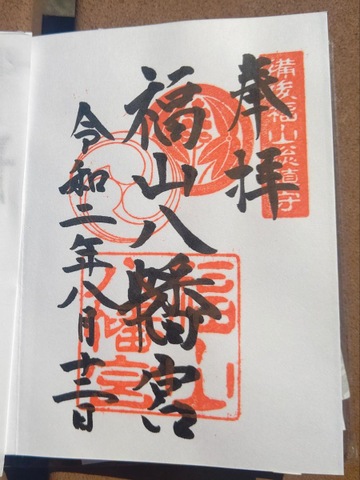 備後福山総鎮守
奉拝
福山八幡宮
令和二年八月十二日
福山
八幡宮